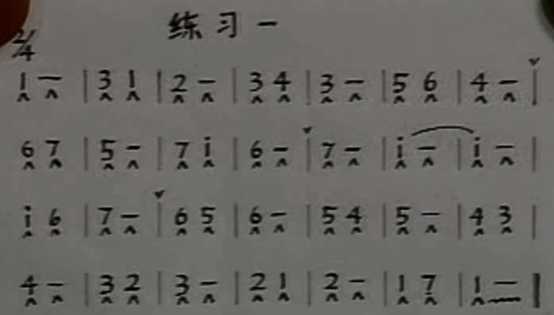 练习一
2/4
1 — | 3 1 | 2 — | 3 4 | 3 — | 5 6 | 4 — |
6 7 | 5 — | 7 i | 6 — | 7 — | i — | i — |
i 6 | 7 — | 6 5 | 6 — | 5 4 | 5 — | 4 3 |
4 — | 3 2 | 3 — | 2 1 | 2 — | 1 7 | 1 — ‖